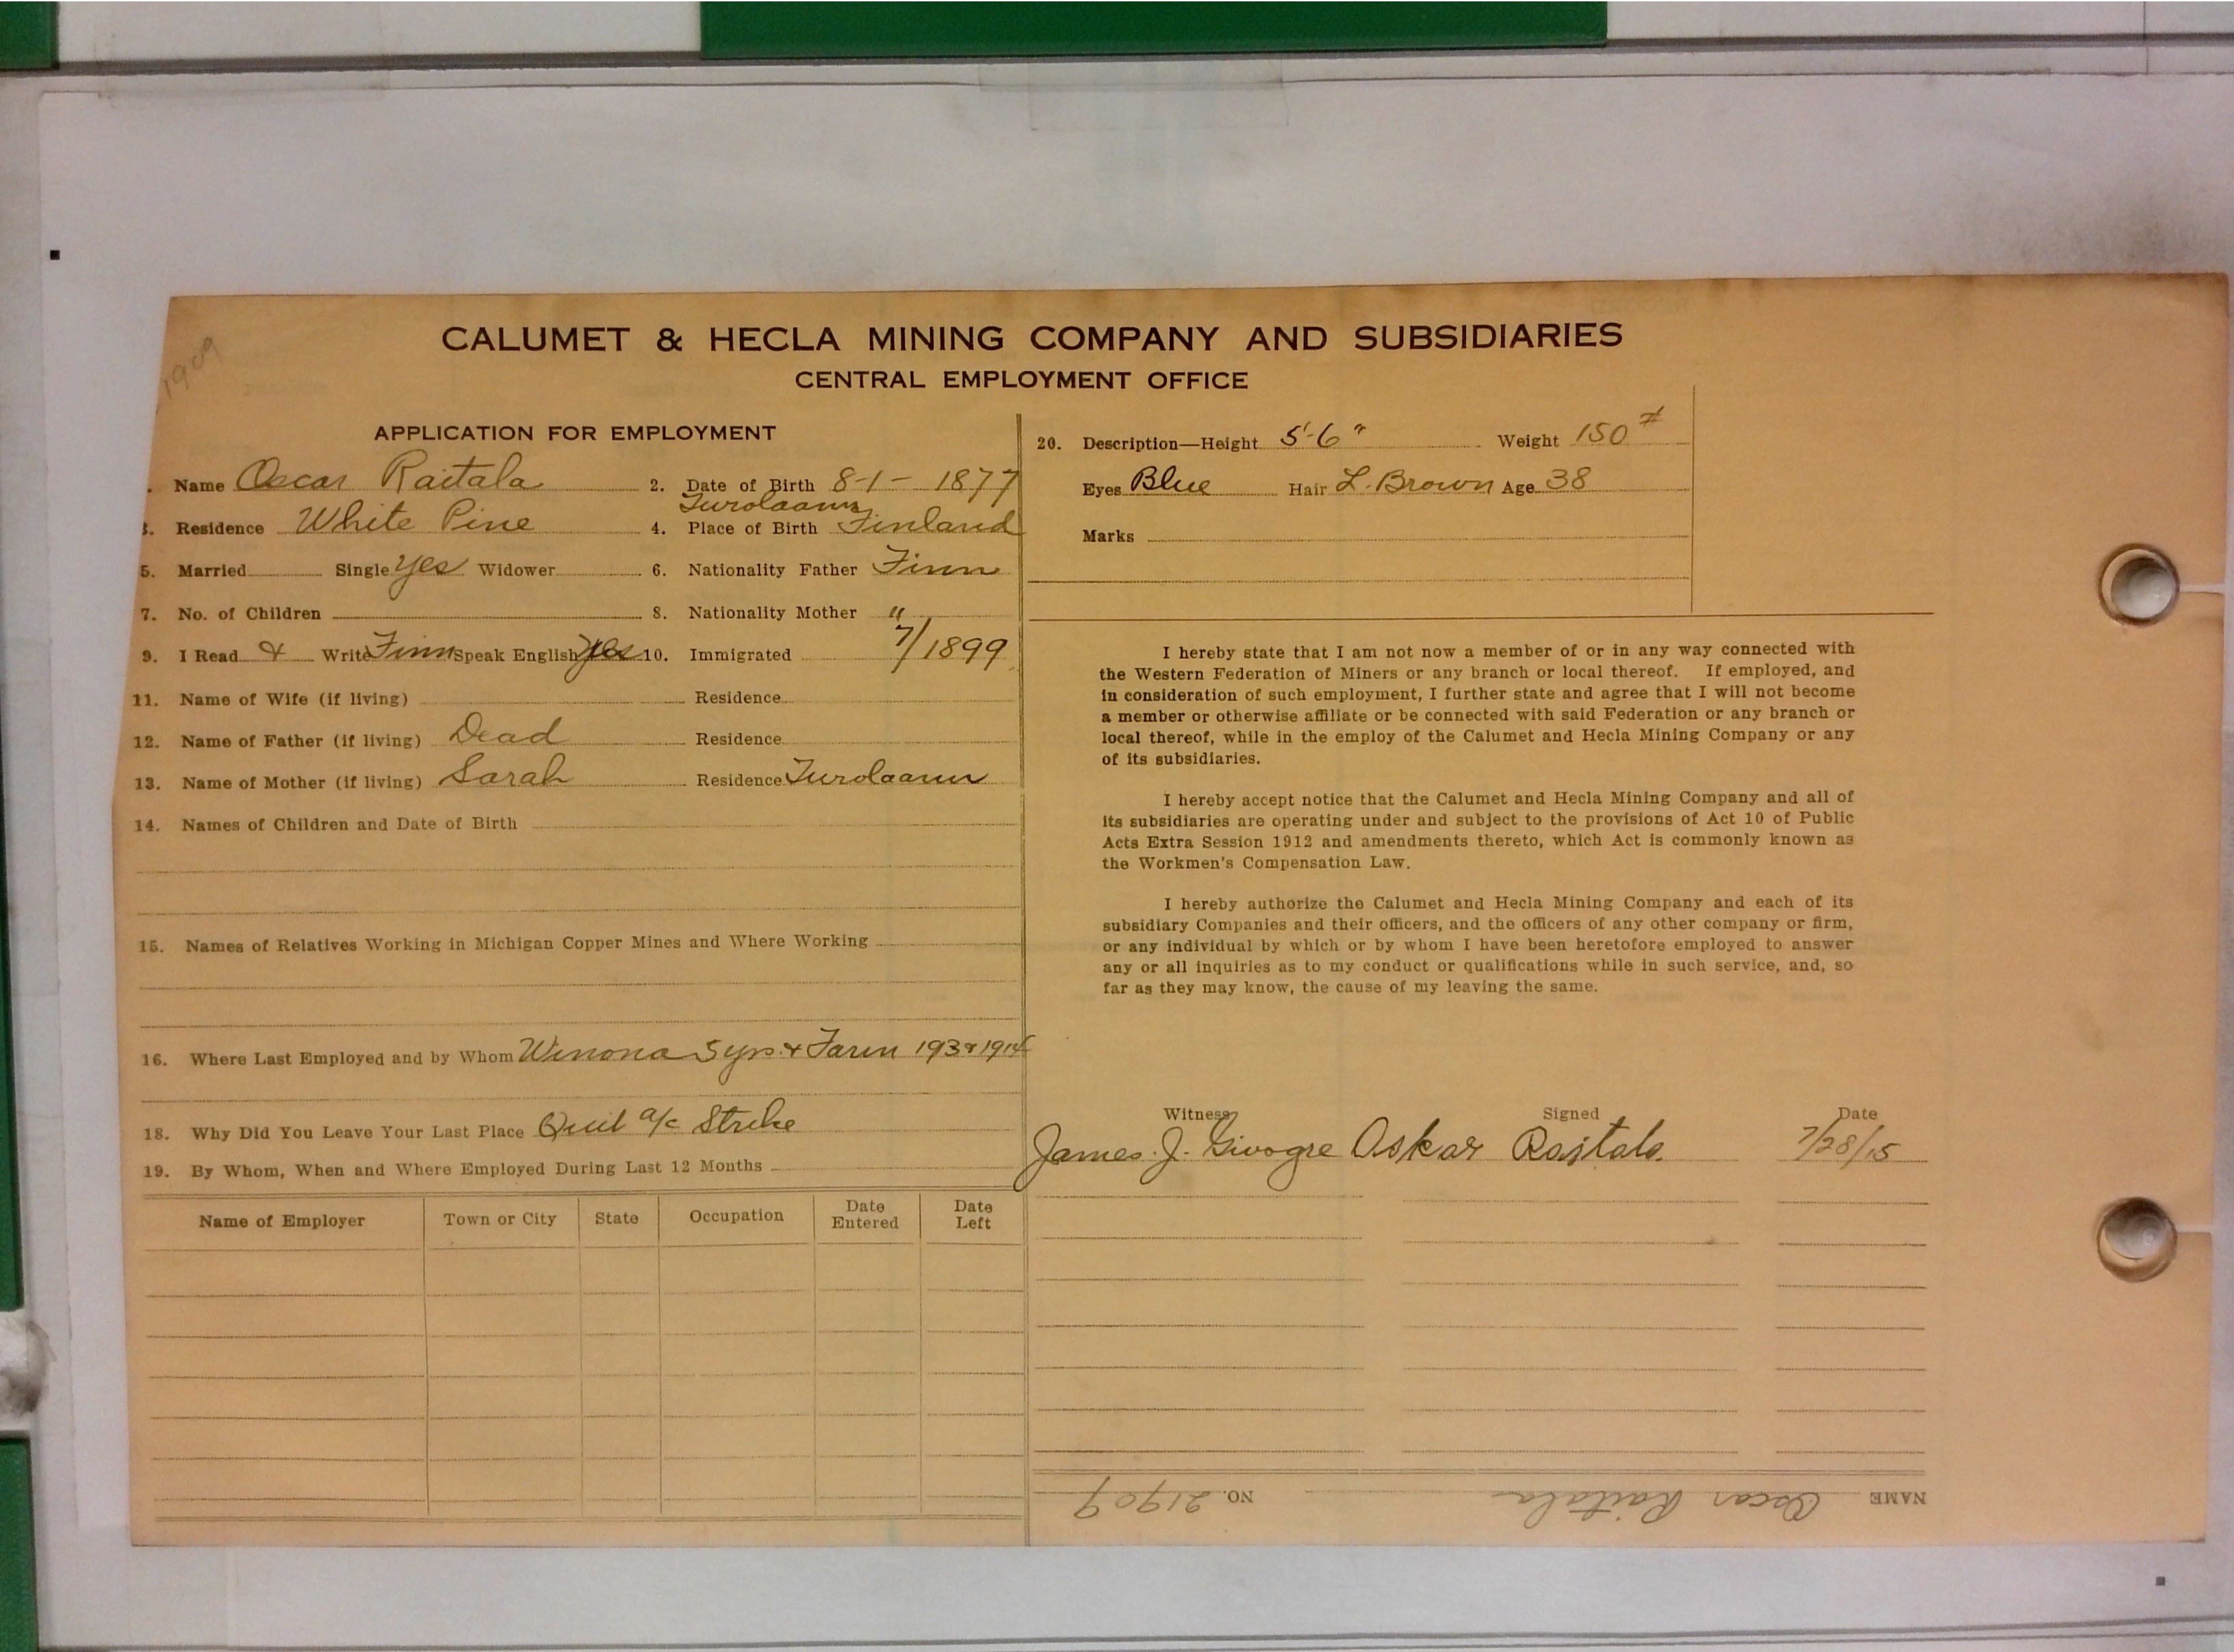 1909
CALUMET & HECLA MINING COMPANY AND SUBSIDIARIES
CENTRAL EMPLOYMENT OFFICE
APPLICATION FOR EMPLOYMENT
. Name Oscar Raitala 2. Date of Birth 8-1-1877
3. Residence White Pine 4. Place of Birth Finland
5. Married Single Yes Widower 6. Nationality Father Finn
7. No. of Children 8. Nationality Mother "
9. I Read & Write Finn Speak English Yes 10. Immigrated 7/1899
11. Name of Wife (if living) Residence
12. Name of Father (if living) Dead Residence
13. Name of Mother (if living) Sarah Residence
14. Names of Children and Date of Birth
15. Names of Relatives Working in Michigan Copper Mines and Where Working
16. Where Last Employed and by Whom Winona 5 yrs. & Farm 193 & 1914
18. Why Did You Leave Your Last Place Quit a/c Strike
19. By Whom, When and Where Employed During Last 12 Months
Name of Employer Town or City State Occupation Date Entered Date Left
20. Description—Height 5'-6" Weight 150 #
Eyes Blue Hair L. Brown Age 38
Marks
I hereby state that I am not now a member of or in any way connected with
the Western Federation of Miners or any branch or local thereof. If employed, and
in consideration of such employment, I further state and agree that I will not become
a member or otherwise affiliate or be connected with said Federation or any branch or
local thereof, while in the employ of the Calumet and Hecla Mining Company or any
of its subsidiaries.
I hereby accept notice that the Calumet and Hecla Mining Company and all of
its subsidiaries are operating under and subject to the provisions of Act 10 of Public
Acts Extra Session 1912 and amendments thereto, which Act is commonly known as
the Workmen's Compensation Law.
I hereby authorize the Calumet and Hecla Mining Company and each of its
subsidiary Companies and their officers, and the officers of any other company or firm,
or any individual by which or by whom I have been heretofore employed to answer
any or all inquiries as to my conduct or qualifications while in such service, and, so
far as they may know, the cause of my leaving the same.
Witness Signed Date
James J. Givogre Oskar Raitala 7/28/15
NAME Oscar Raitala NO. 21909